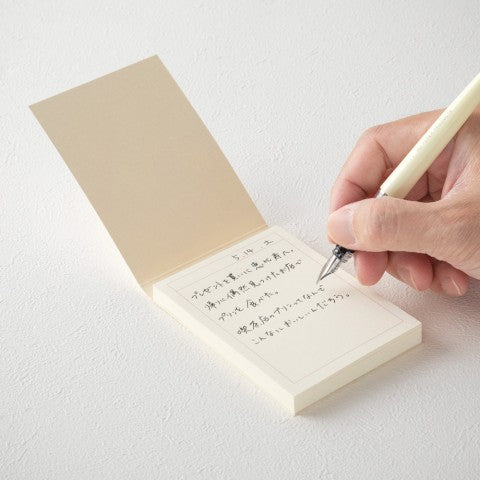 5.14 土
プレゼントを買いに恵比寿へ。
帰りに偶然見つけたお店で
プリンを食べた。
喫茶店のプリンってなんで
こんなにおいしいんだろう。